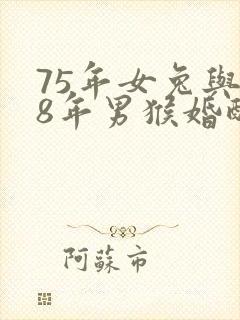 75年女兔與
8年男猴婚
阿蘇市